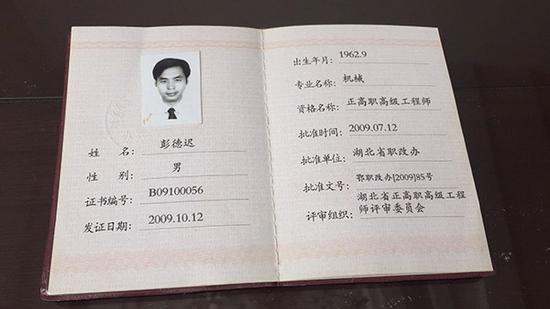 姓 名: 彭德迟
性 别: 男
证书编号: B09100056
发证日期: 2009.10.12
出生年月: 1962.9
专业名称: 机械
资格名称: 正高职高级工程师
批准时间: 2009.07.12
批准单位: 湖北省职改办
批准文号: 鄂职改办[2009]85号
评审组织: 湖北省正高职高级工程
师评审委员会